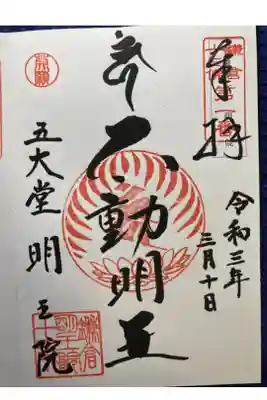 奉拝
令和三年
三月十日
不動明王
五大堂 明王院
鎌倉